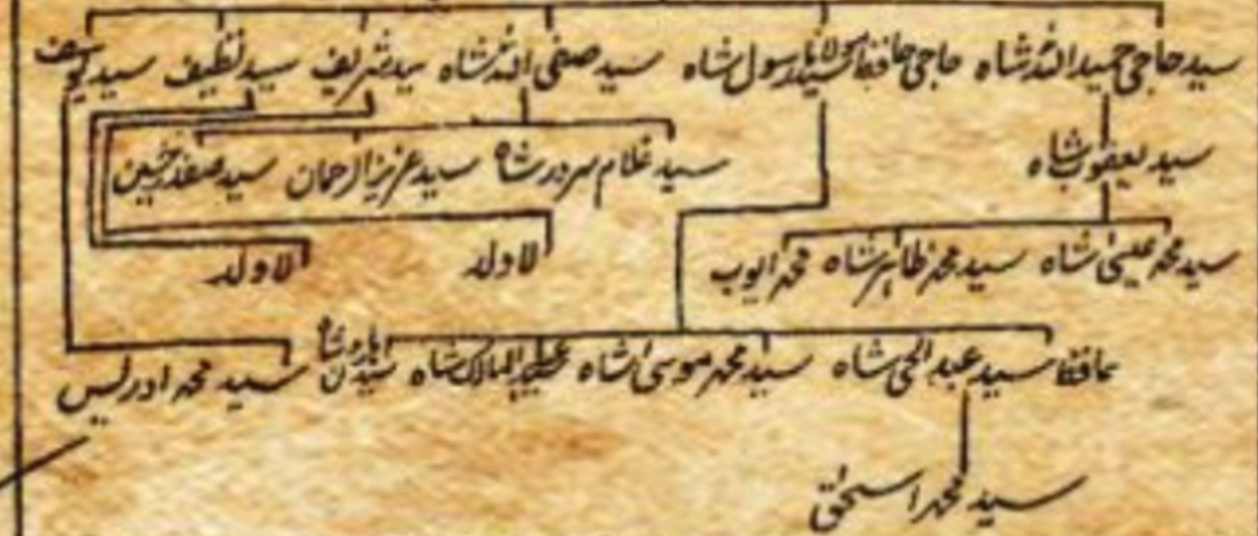 سید حاجی حمید اللہ شاہ حاجی حافظ سید رسول شاہ سید صفی اللہ شاہ سید شریف سید نظیف سید یوسف
سید یعقوب شاہ سید غلام سرور شاہ سید عزیز الرحمان سید صفدر حسین
سید محمد عیسیٰ شاہ سید محمد طاہر شاہ محمد ایوب لاولد لاولد
حافظ سید عبدالحی شاہ سید محمد موسیٰ شاہ عبدالمالک شاہ سید ہارون شاہ سید محمد ادریس
سید محمد اسحٰق